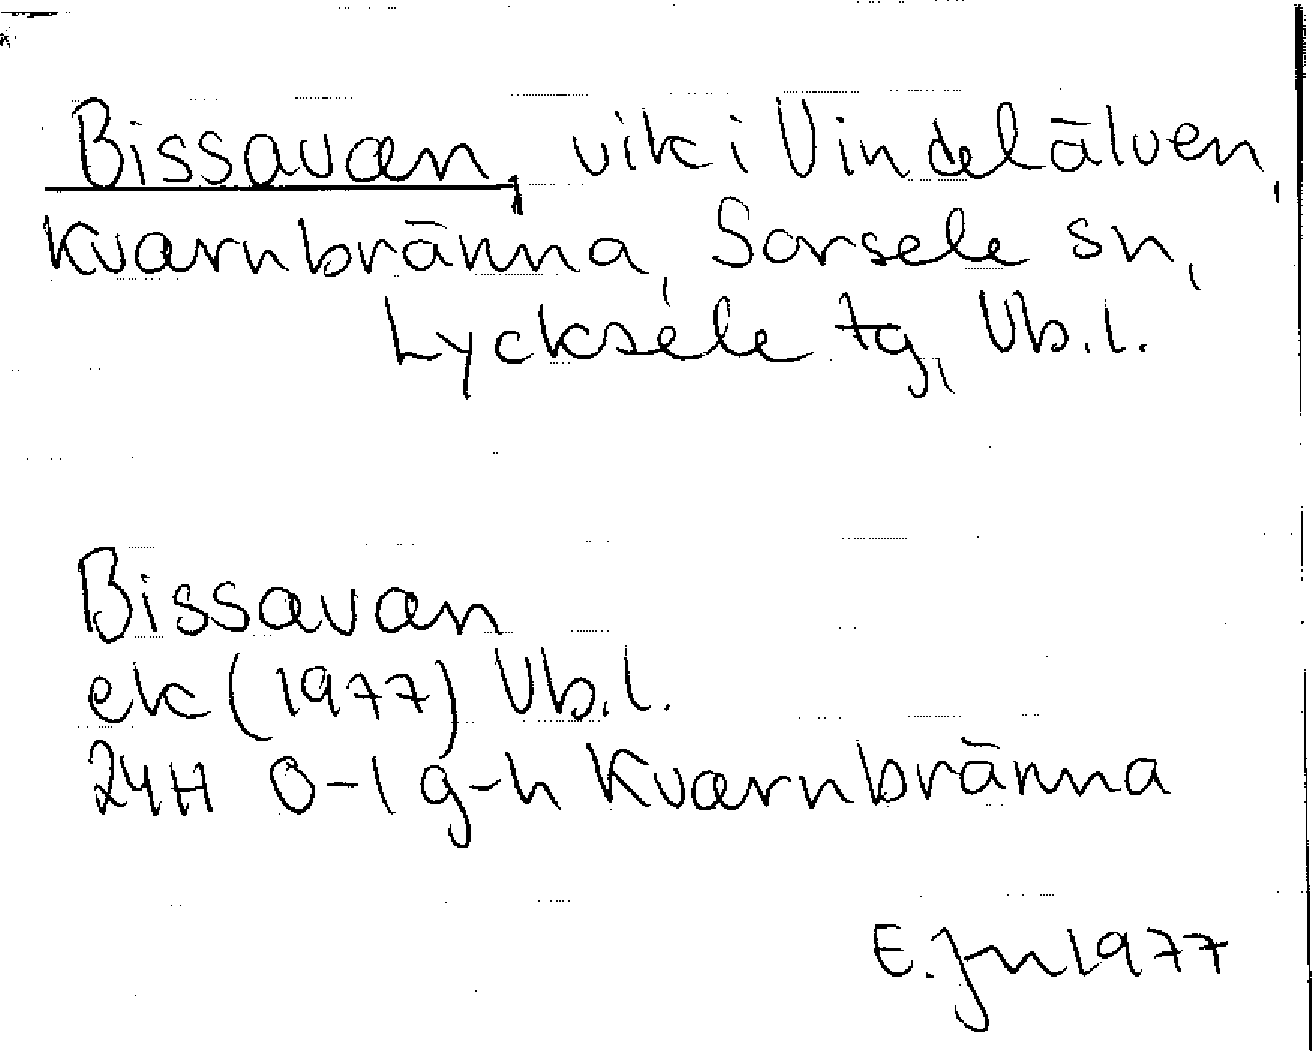 Bissavan, vik i Vindelälven,
Kvarnbränna, Sorsele sn,
Lycksele tg, Vb.l.
Bissavan
ek (1977) Vb.l.
24H 0-1 g-h Kvarnbränna
E. Jn 1977